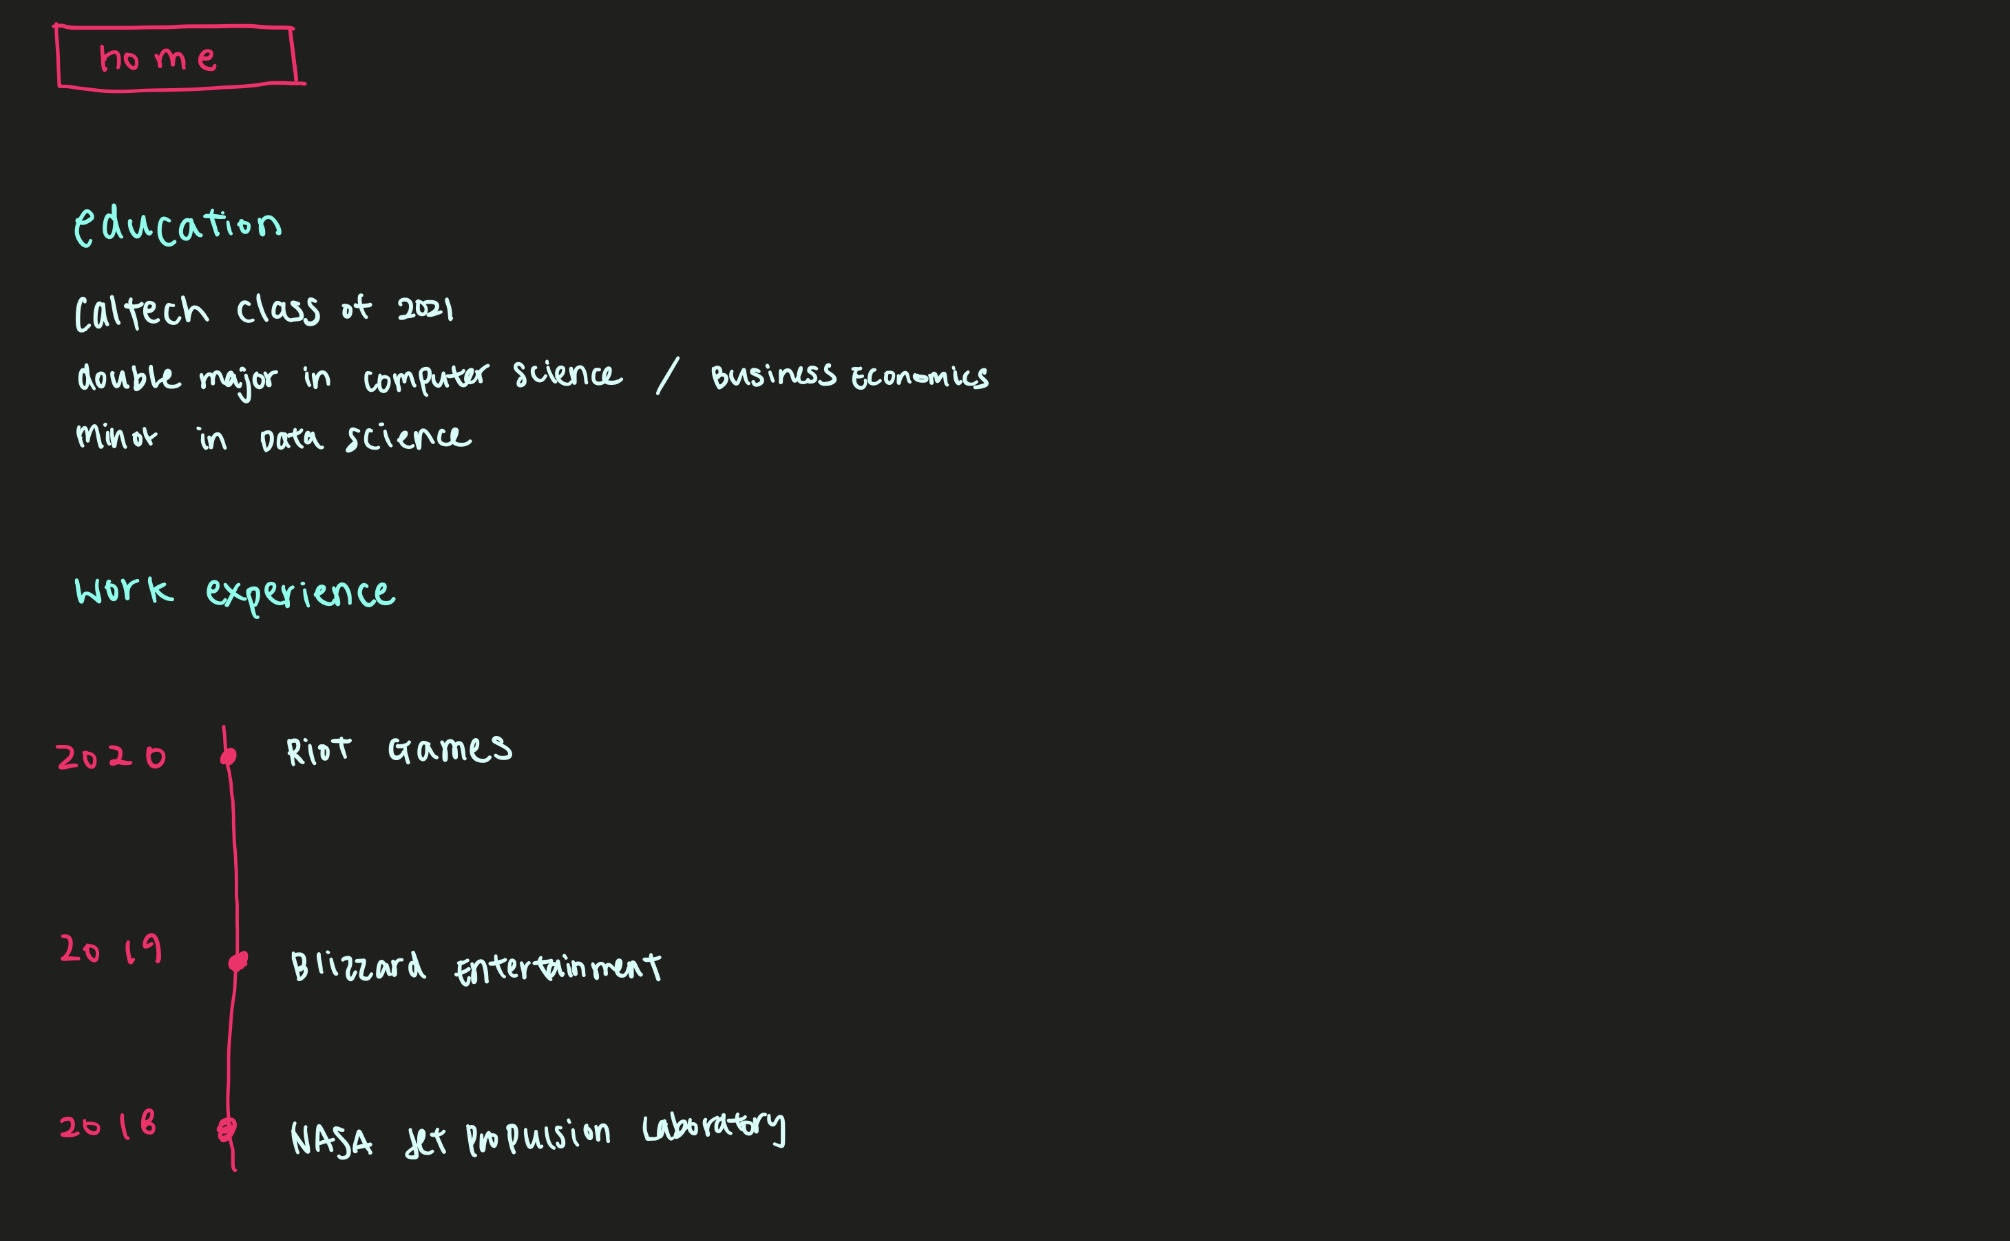 home
education
Caltech class of 2021
double major in computer science / Business Economics
Minor in Data science
Work experience
2020 Riot Games
2019 Blizzard Entertainment
2018 NASA Jet Propulsion Laboratory